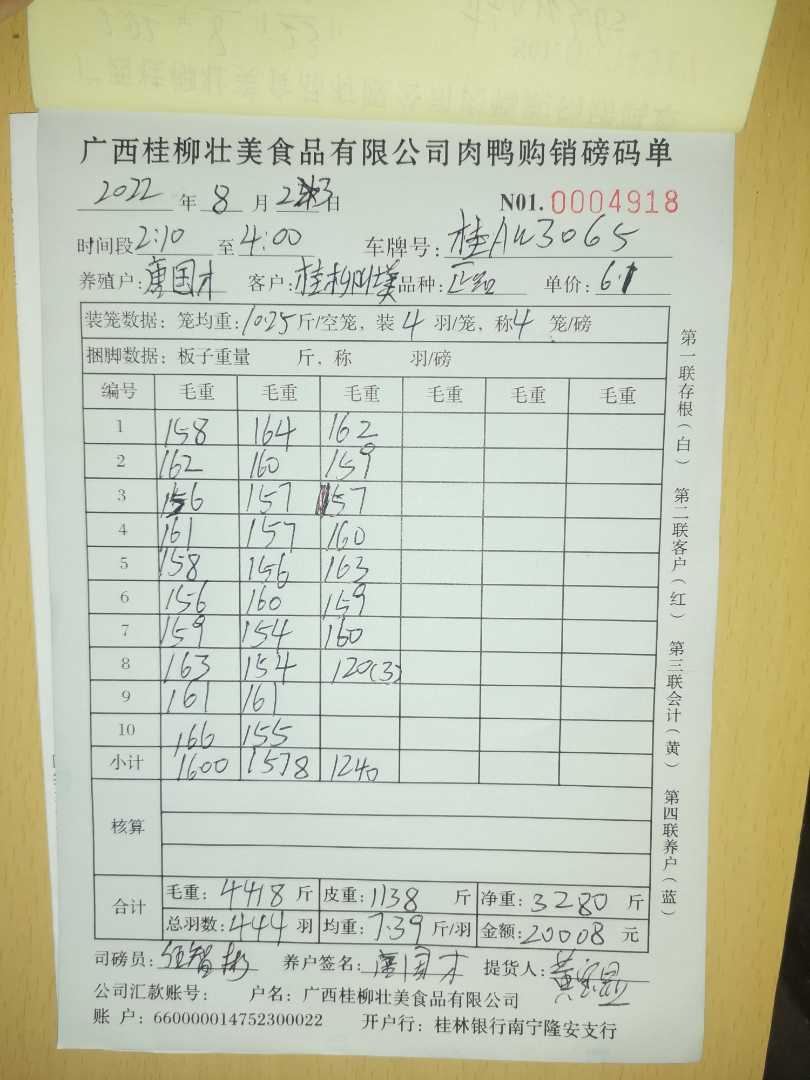 广西桂柳壮美食品有限公司肉鸭购销磅码单
2022 年 8 月 23 日 N01. 0004918
时间段 2:10 至 4:00 车牌号: 桂AW3065
养殖户: 唐国才 客户: 桂柳 品种: 单价: 6.1
装笼数据: 笼均重: 10.25 斤/空笼, 装 4 羽/笼, 称 4 笼/磅
捆脚数据: 板子重量 斤, 称 羽/磅
编号 毛重 毛重 毛重 毛重 毛重 毛重
1 158 164 162
2 162 160 159
3 156 157 157
4 161 157 160
5 158 156 163
6 156 160 159
7 159 154 160
8 163 154 120(3)
9 161 161
10 166 155
小计 1600 1578 1240
核算
合计 毛重: 4418 斤 皮重: 1138 斤 净重: 3280 斤
总羽数: 444 羽 均重: 7.39 斤/羽 金额: 20008 元
司磅员: 养户签名: 唐国才 提货人:
公司汇款账号: 户名: 广西桂柳壮美食品有限公司
账 户: 660000014752300022 开户行: 桂林银行南宁隆安支行
第一联存根(白) 第二联客户(红) 第三联会计(黄) 第四联养户(蓝)